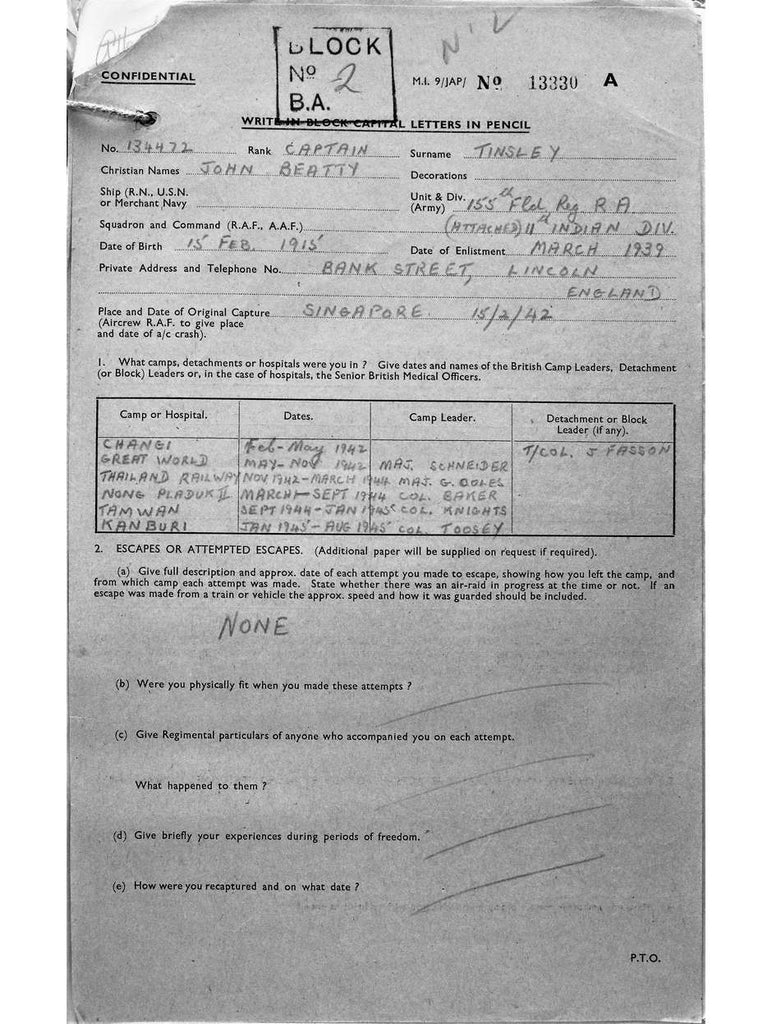 NIL
BLOCK
No 2
B.A.
CONFIDENTIAL
M.I. 9/JAP/ No 13330 A
WRITE IN BLOCK CAPITAL LETTERS IN PENCIL
No. 134472 Rank CAPTAIN Surname TINSLEY
Christian Names JOHN BEATTY Decorations
Ship (R.N., U.S.N.
or Merchant Navy
Unit & Div.
(Army) 155th Fld Reg R A
Squadron and Command (R.A.F., A.A.F.) (ATTACHED) 11th INDIAN DIV.
Date of Birth 15 FEB. 1915 Date of Enlistment MARCH 1939
Private Address and Telephone No. BANK STREET, LINCOLN
ENGLAND
Place and Date of Original Capture SINGAPORE. 15/2/42
(Aircrew R.A.F. to give place
and date of a/c crash).
1. What camps, detachments or hospitals were you in ? Give dates and names of the British Camp Leaders, Detachment
(or Block) Leaders or, in the case of hospitals, the Senior British Medical Officers.
Camp or Hospital. Dates. Camp Leader. Detachment or Block
Leader (if any).
CHANGI Feb-May 1942 T/COL. J FASSON
GREAT WORLD MAY-NOV 1942 MAJ. SCHNEIDER
THAILAND RAILWAY NOV 1942-MARCH 1944 MAJ. G.
NONG PLADUK II MARCH-SEPT 1944 COL. BAKER
TAMWAN SEPT 1944-JAN 1945 COL. KNIGHTS
KANBURI JAN 1945-AUG 1945 COL. TOOSEY
2. ESCAPES OR ATTEMPTED ESCAPES. (Additional paper will be supplied on request if required).
(a) Give full description and approx. date of each attempt you made to escape, showing how you left the camp, and
from which camp each attempt was made. State whether there was an air-raid in progress at the time or not. If an
escape was made from a train or vehicle the approx. speed and how it was guarded should be included.
NONE
(b) Were you physically fit when you made these attempts ?
(c) Give Regimental particulars of anyone who accompanied you on each attempt.
What happened to them ?
(d) Give briefly your experiences during periods of freedom.
(e) How were you recaptured and on what date ?
P.T.O.